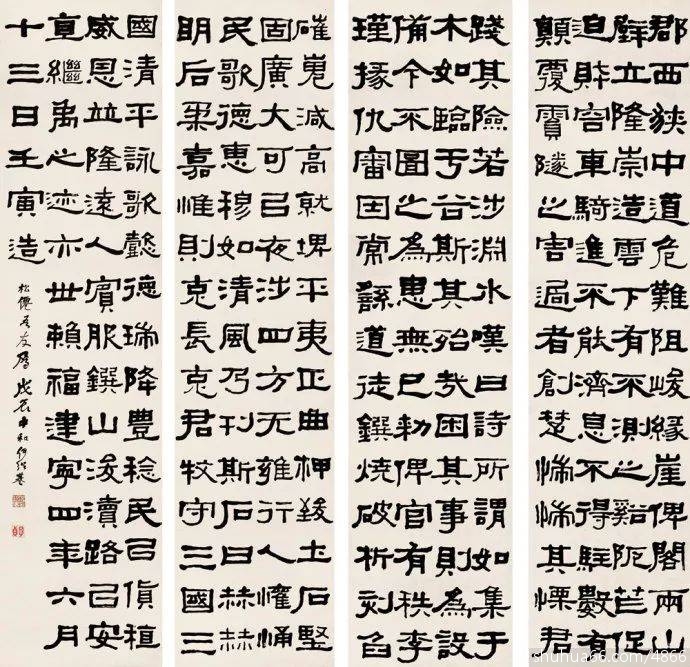 郡西狹中道危難阻峻緣崖俾閣兩山
壁立隆崇造雲下有不測之谿阨芒促
迫財容車騎進不能濟息不得駐數有
顛覆霣隧之害過者創楚惴惴其慄君
踐其險若涉淵氷嘆曰詩所謂如集于
木如臨于谷斯其殆哉困其事則為設
備今不圖之為患無已勑俾官有秩李
瑾掾仇審因常繇道徒鐉燒破析刻臽
磪嵬減高就埤平夷正曲柙致土石堅
固廣大可以夜涉四方无雍行人懽悀
民歌德惠穆如清風乃刊斯石曰赫赫
明后柔嘉惟則克長克君牧守三國三
國清平詠歌懿德瑞降豊稔民以貨稙
威恩並隆遠人賓服鐉山浚瀆路以安
直繼禹之迹亦世賴福建寧四年六月
十三日壬寅造
松僊老友屬 戊辰中和何紹基
shuhua66.com/4866